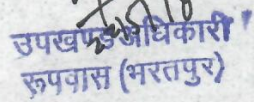 उपखण्ड अधिकारी
रूपवास (भरतपुर)